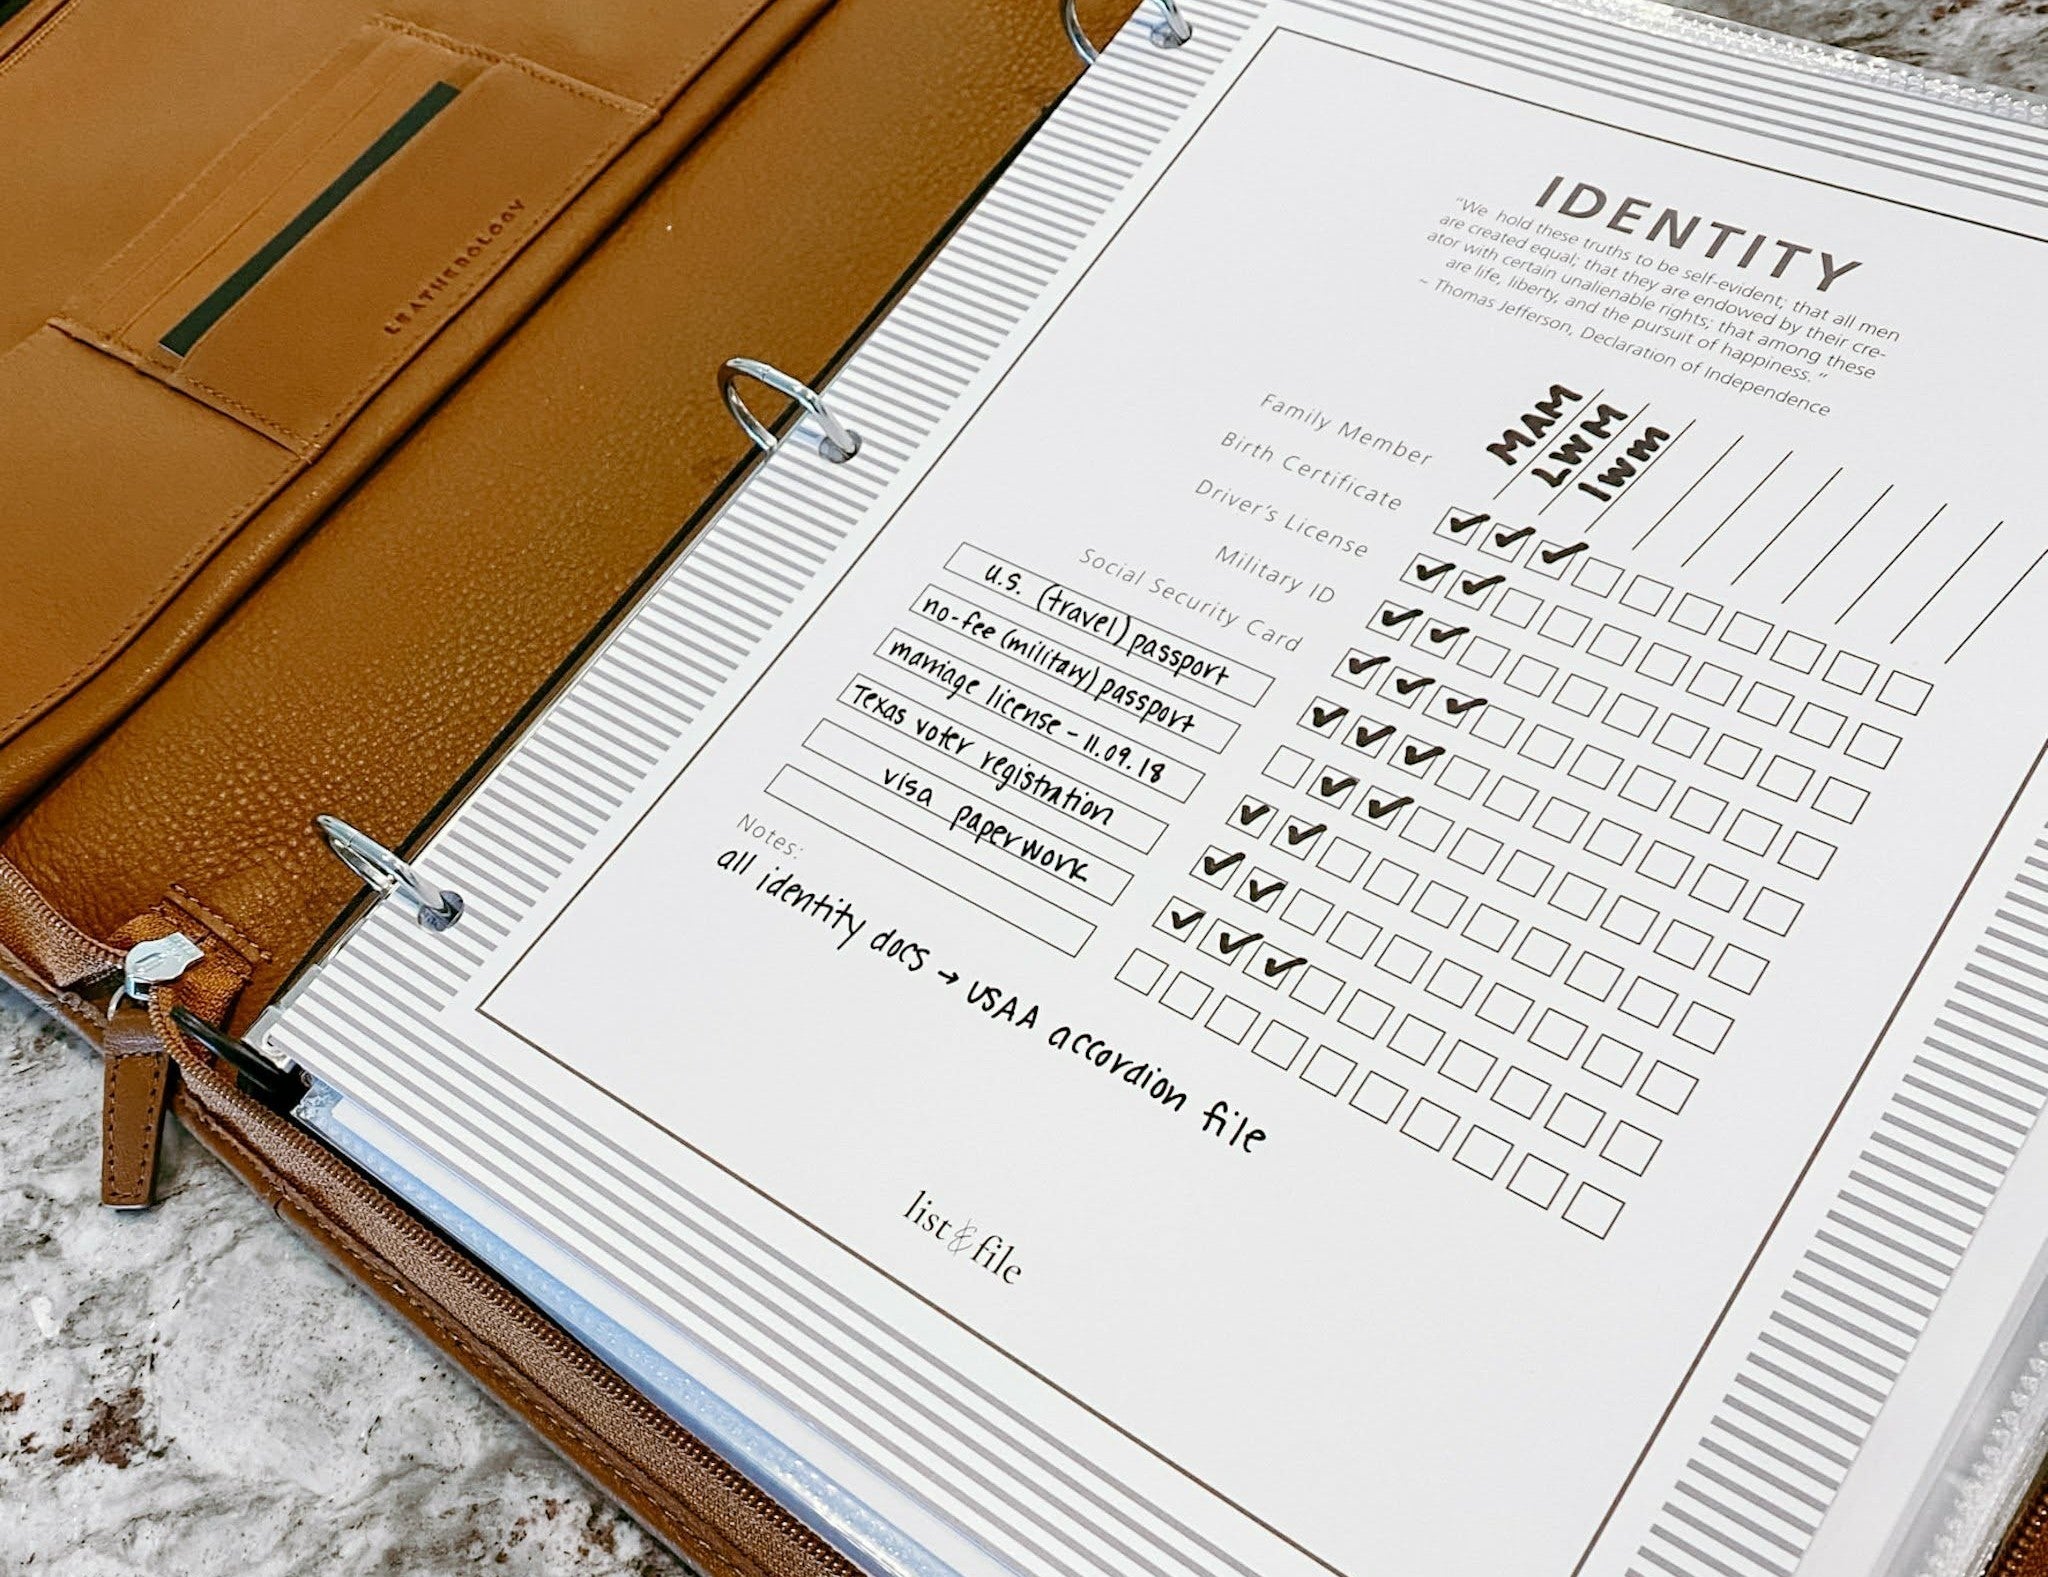 LEATHEROLOGY
IDENTITY
"We hold these truths to be self-evident; that all men
are created equal; that they are endowed by their cre-
ator with certain unalienable rights; that among these
are life, liberty, and the pursuit of happiness."
~ Thomas Jefferson, Declaration of Independence
Family Member MAM LWM IWM
Birth Certificate ✓ ✓ ✓
Driver's License ✓ ✓
Military ID ✓ ✓
Social Security Card ✓ ✓ ✓
u.s. (travel) passport ✓ ✓ ✓
no-fee (military) passport ✓ ✓
marriage license - 11.09.18 ✓ ✓
Texas voter registration ✓ ✓
visa paperwork ✓ ✓ ✓
Notes:
all identity docs → USAA accordion file
list & file